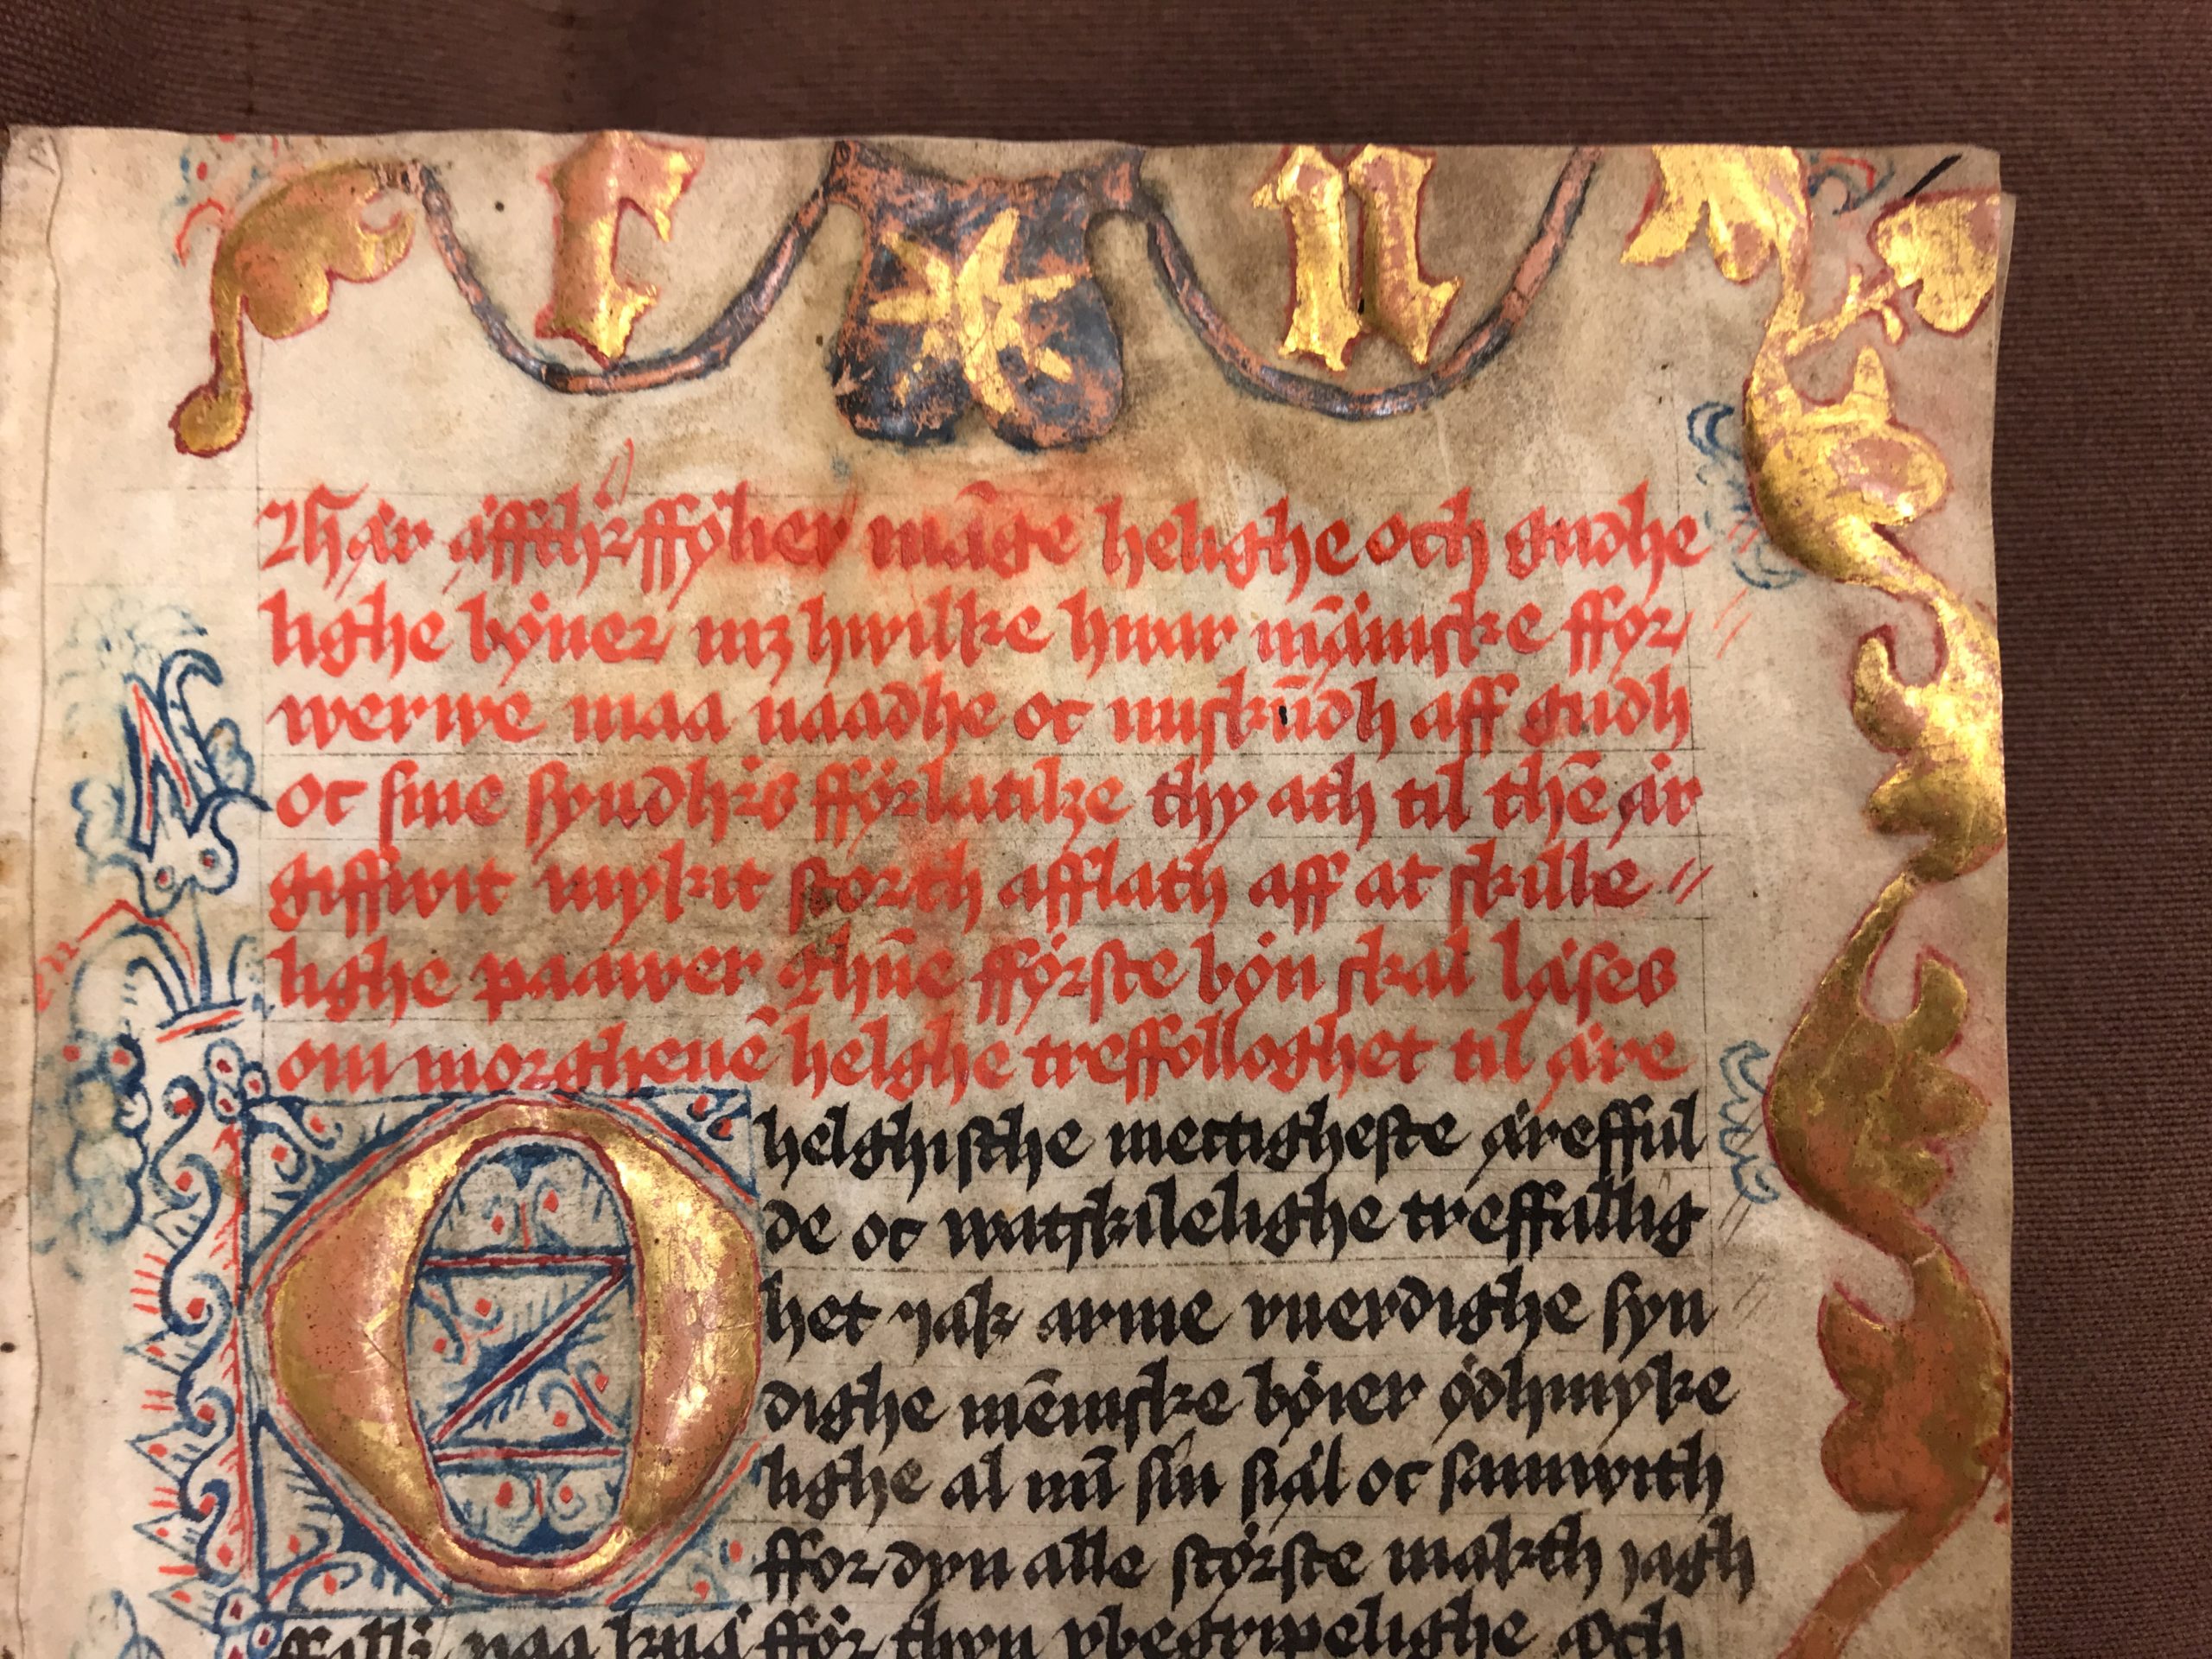 c n
Thär äffthr ffölier mā̄ge helighe och gudhe
lighe böner mz hwilke hwar mā̄inske ffor
werwe maa naadhe oc miskūdh aff gudh
oc sine syndhrs fförlatilze thy ath til thē är
giffwit mykit storth afflath aff at skille
lighe paawer Thn̄e fförste bön skal läses
om morghenē helghe treffolloghet til äre
O helghisthe mectigheste äreffül
de oc watskilelighe treffallig
het Jak arme vuerdighe syn
dighe mēniske böier ödhmyke
lighe al mī sin siäl oc samwith
ffor dyn alle störste makth iagh
naa knä ffor thyn vbegripelighe och